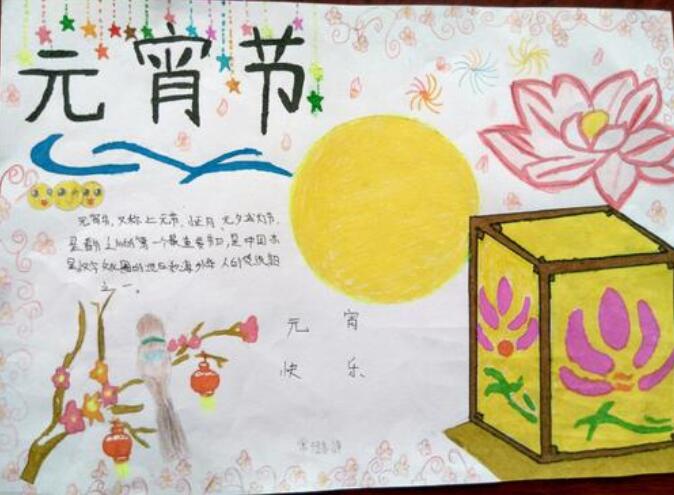 元宵节
元宵节,又称上元节、正月、元夕或灯节,
是春节之后的第一个重要节日,是中国亦
是汉字文化圈的地区和海外华人的传统节日
之一。
元 宵
快 乐